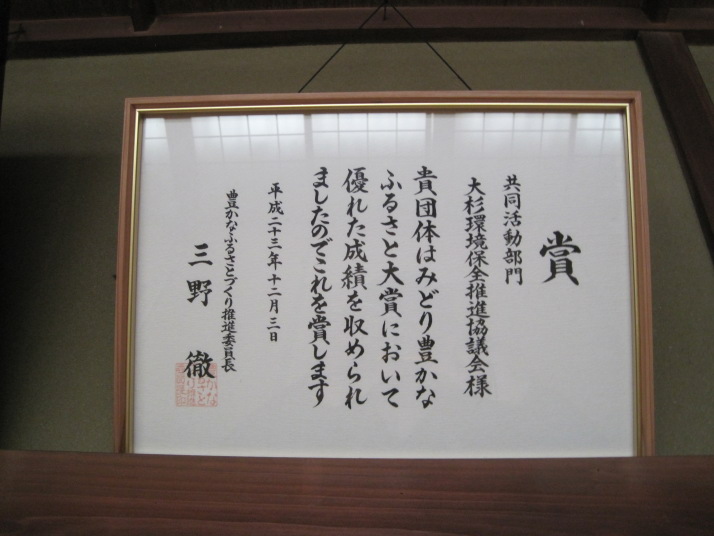 賞
共同活動部門
大杉環境保全推進協議会様
貴団体はみどり豊かな
ふるさと大賞において
優れた成績を収められ
ましたのでこれを賞します
平成二十三年十二月三日
豊かなふるさとづくり推進委員長
三野 徹